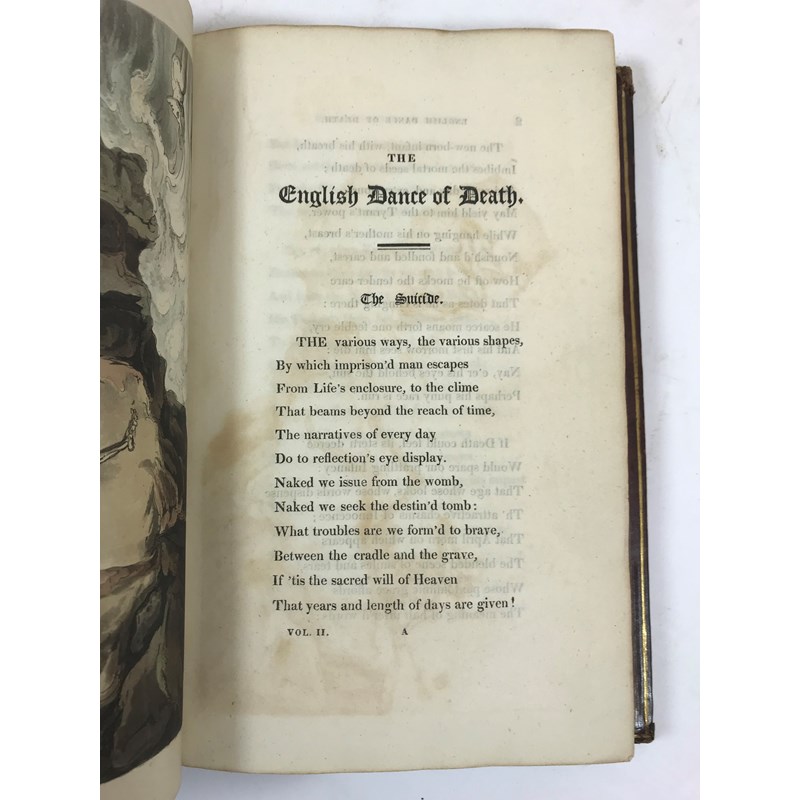 THE
English Dance of Death.
The Suicide.
THE various ways, the various shapes,
By which imprison'd man escapes
From Life's enclosure, to the clime
That beams beyond the reach of time,
The narratives of every day
Do to reflection's eye display.
Naked we issue from the womb,
Naked we seek the destin'd tomb:
What troubles are we form'd to brave,
Between the cradle and the grave,
If 'tis the sacred will of Heaven
That years and length of days are given!
VOL. II. A